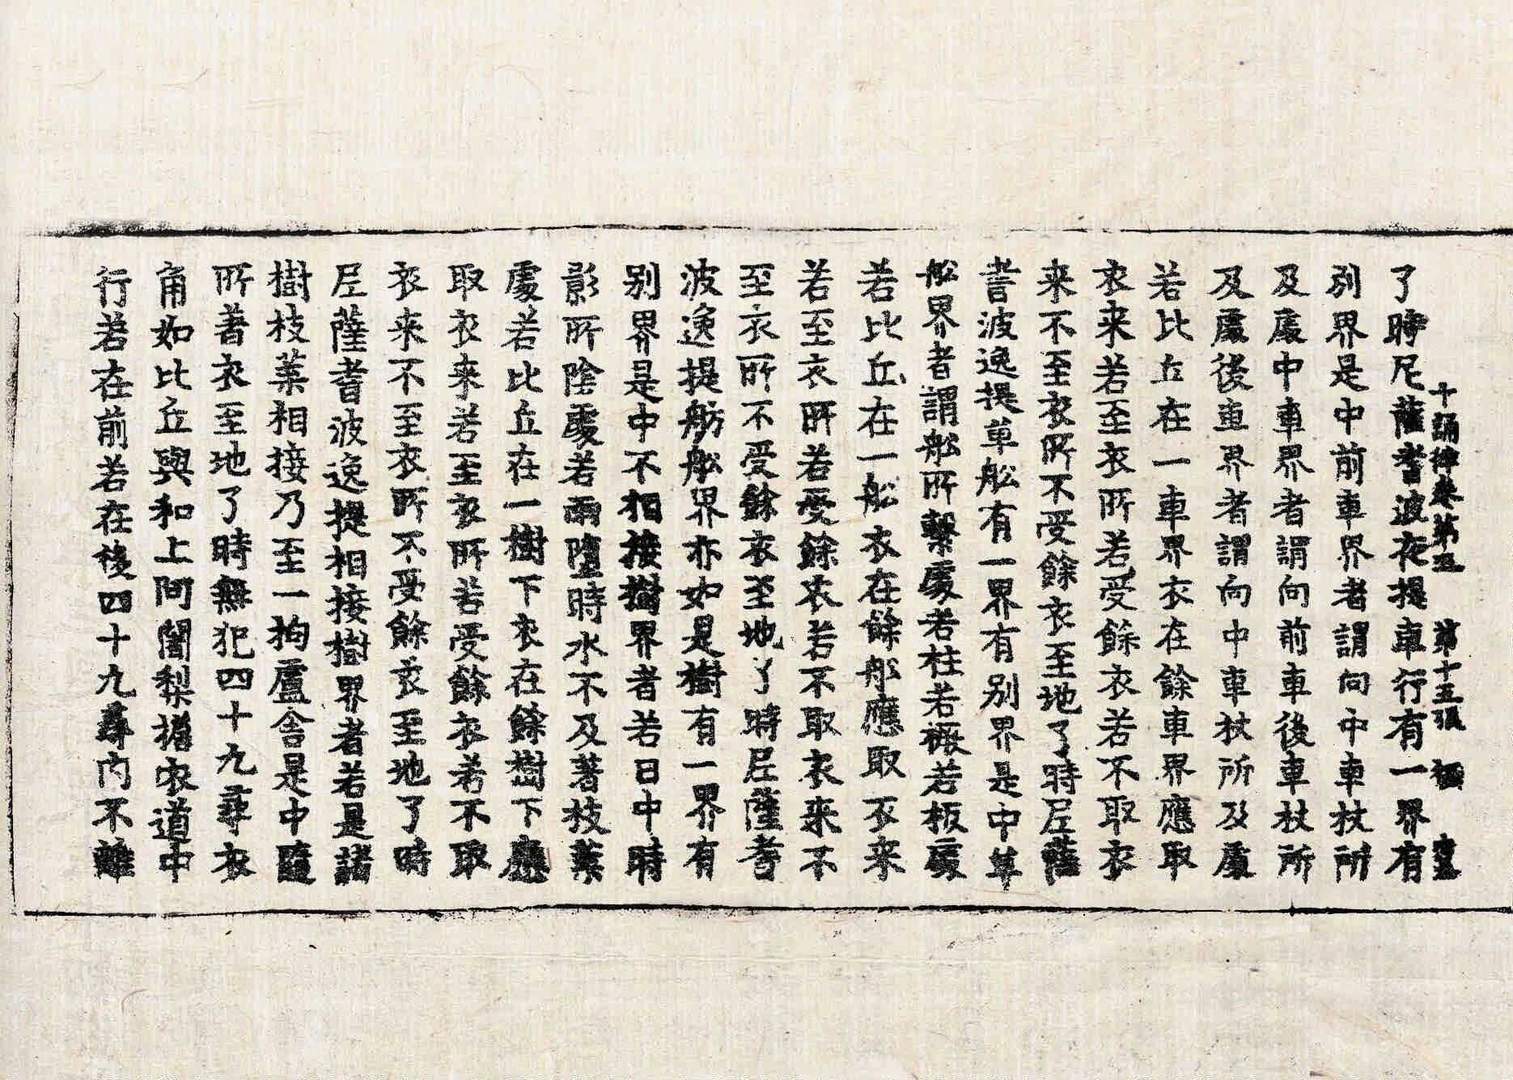 十誦律卷第五 第十五張
了時尼薩耆波夜提車行有一界有
別界是中前車界者謂向中車杖所
及處中車界者謂向前車後車杖所
及處後車界者謂向中車杖所及處
若比丘在一車界衣在餘車界應取
衣来若至衣所若受餘衣若不取衣
来不至衣所不受餘衣至地了時尼薩
耆波逸提草舩有一界有别界是中草
舩界者謂舩所繫處若柱若橛若板處
若比丘在一舩衣在餘舩應取衣来
若至衣所若受餘衣若不取衣来不
至衣所不受餘衣至地了時尼薩耆
波逸提舫舩界亦如是樹有一界有
别界是中不相接樹界者若日中時
影所陰處若雨墮時水不及著枝葉
處若比丘在一樹下衣在餘樹下應
取衣来若至衣所若受餘衣若不取
衣来不至衣所不受餘衣至地了時
尼薩耆波逸提相接樹界者若是諸
樹枝葉相接乃至一拘盧舍是中隨
所著衣至地了時無犯四十九尋衣
角如比丘與和上阿闍梨擔衣道中
行若在前若在後四十九尋內不離